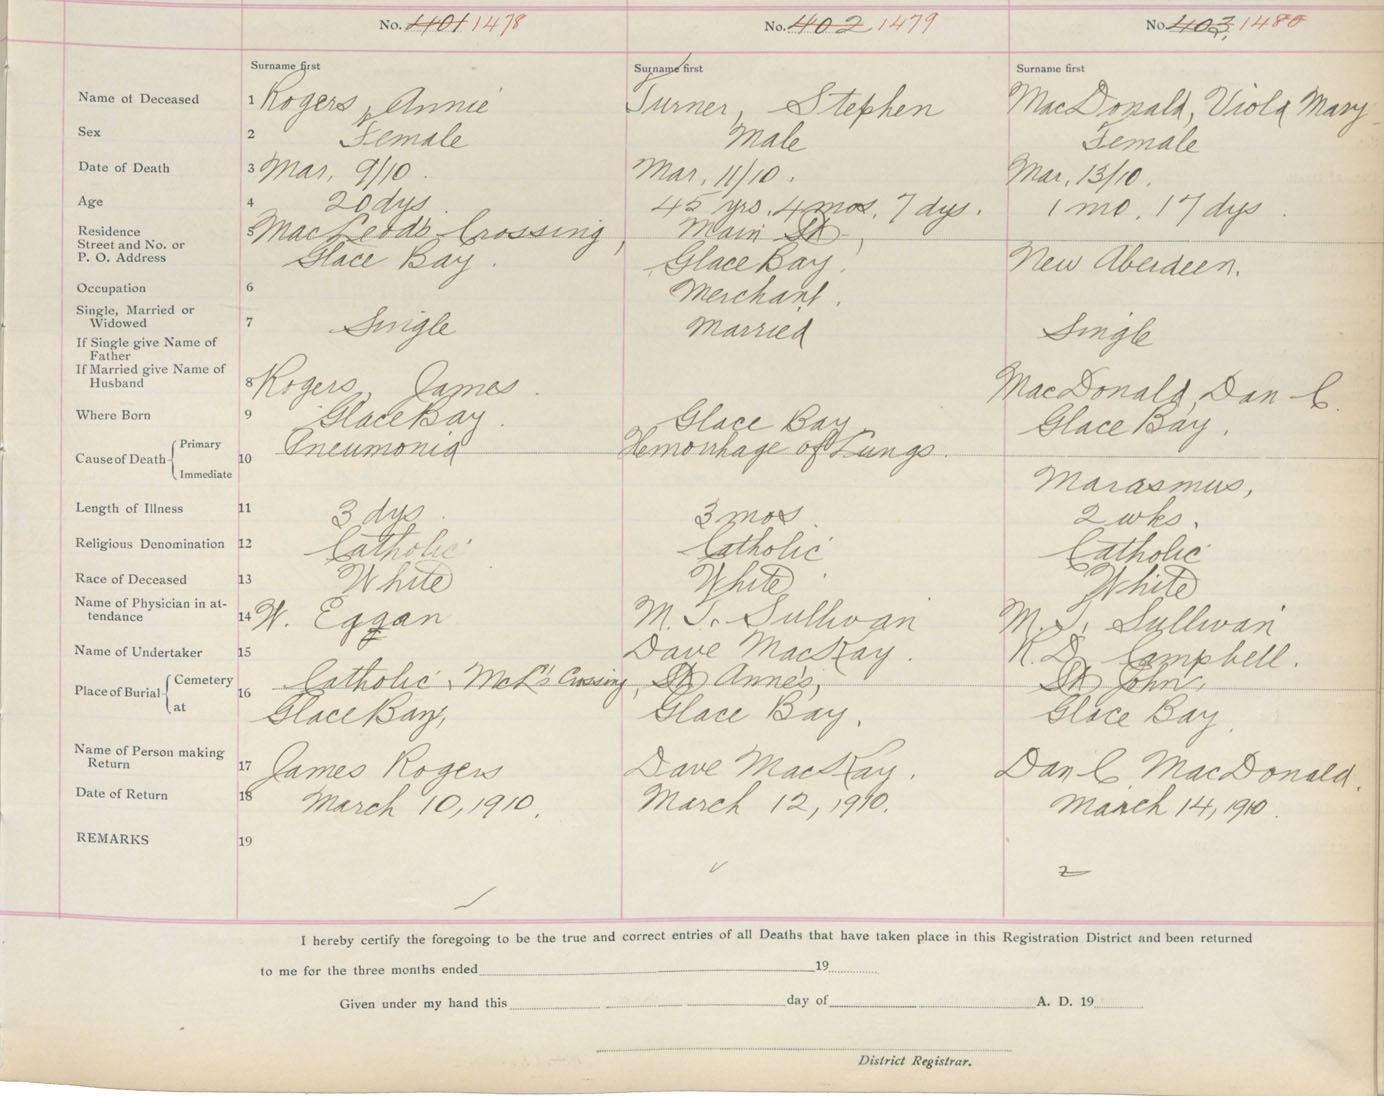 No. 401 1478 No. 402 1479 No. 403 1480
Surname first Surname first Surname first
Name of Deceased 1 Rogers, Annie Turner, Stephen MacDonald, Viola Mary
Sex 2 Female Male Female
Date of Death 3 Mar. 9/10. Mar. 11/10. Mar. 13/10.
Age 4 20 dys. 45 yrs. 4 mos. 7 dys. 1 mo. 17 dys.
Residence 5 MacLeod's Crossing, Main St.,
Street and No. or
P. O. Address Glace Bay. Glace Bay. New Aberdeen.
Occupation 6 Merchant.
Single, Married or
Widowed 7 Single Married Single
If Single give Name of
Father
If Married give Name of
Husband 8 Rogers, James. MacDonald, Dan C.
Where Born 9 Glace Bay. Glace Bay Glace Bay.
Cause of Death Primary 10 Pneumonia Hemorrhage of Lungs.
Immediate Marasmus.
Length of Illness 11 3 dys. 3 mos. 2 wks.
Religious Denomination 12 Catholic Catholic Catholic
Race of Deceased 13 White White White
Name of Physician in at-
tendance 14 W. Eggan M. T. Sullivan M. T. Sullivan
Name of Undertaker 15 Dave MacKay. R. D. Campbell.
Place of Burial Cemetery 16 Catholic, McL's Crossing, St Anne's, St John's,
at Glace Bay, Glace Bay. Glace Bay.
Name of Person making
Return 17 James Rogers Dave MacKay. Dan C MacDonald.
Date of Return 18 March 10, 1910. March 12, 1910. March 14, 1910.
REMARKS 19
I hereby certify the foregoing to be the true and correct entries of all Deaths that have taken place in this Registration District and been returned
to me for the three months ended 19
Given under my hand this day of A. D. 19
District Registrar.